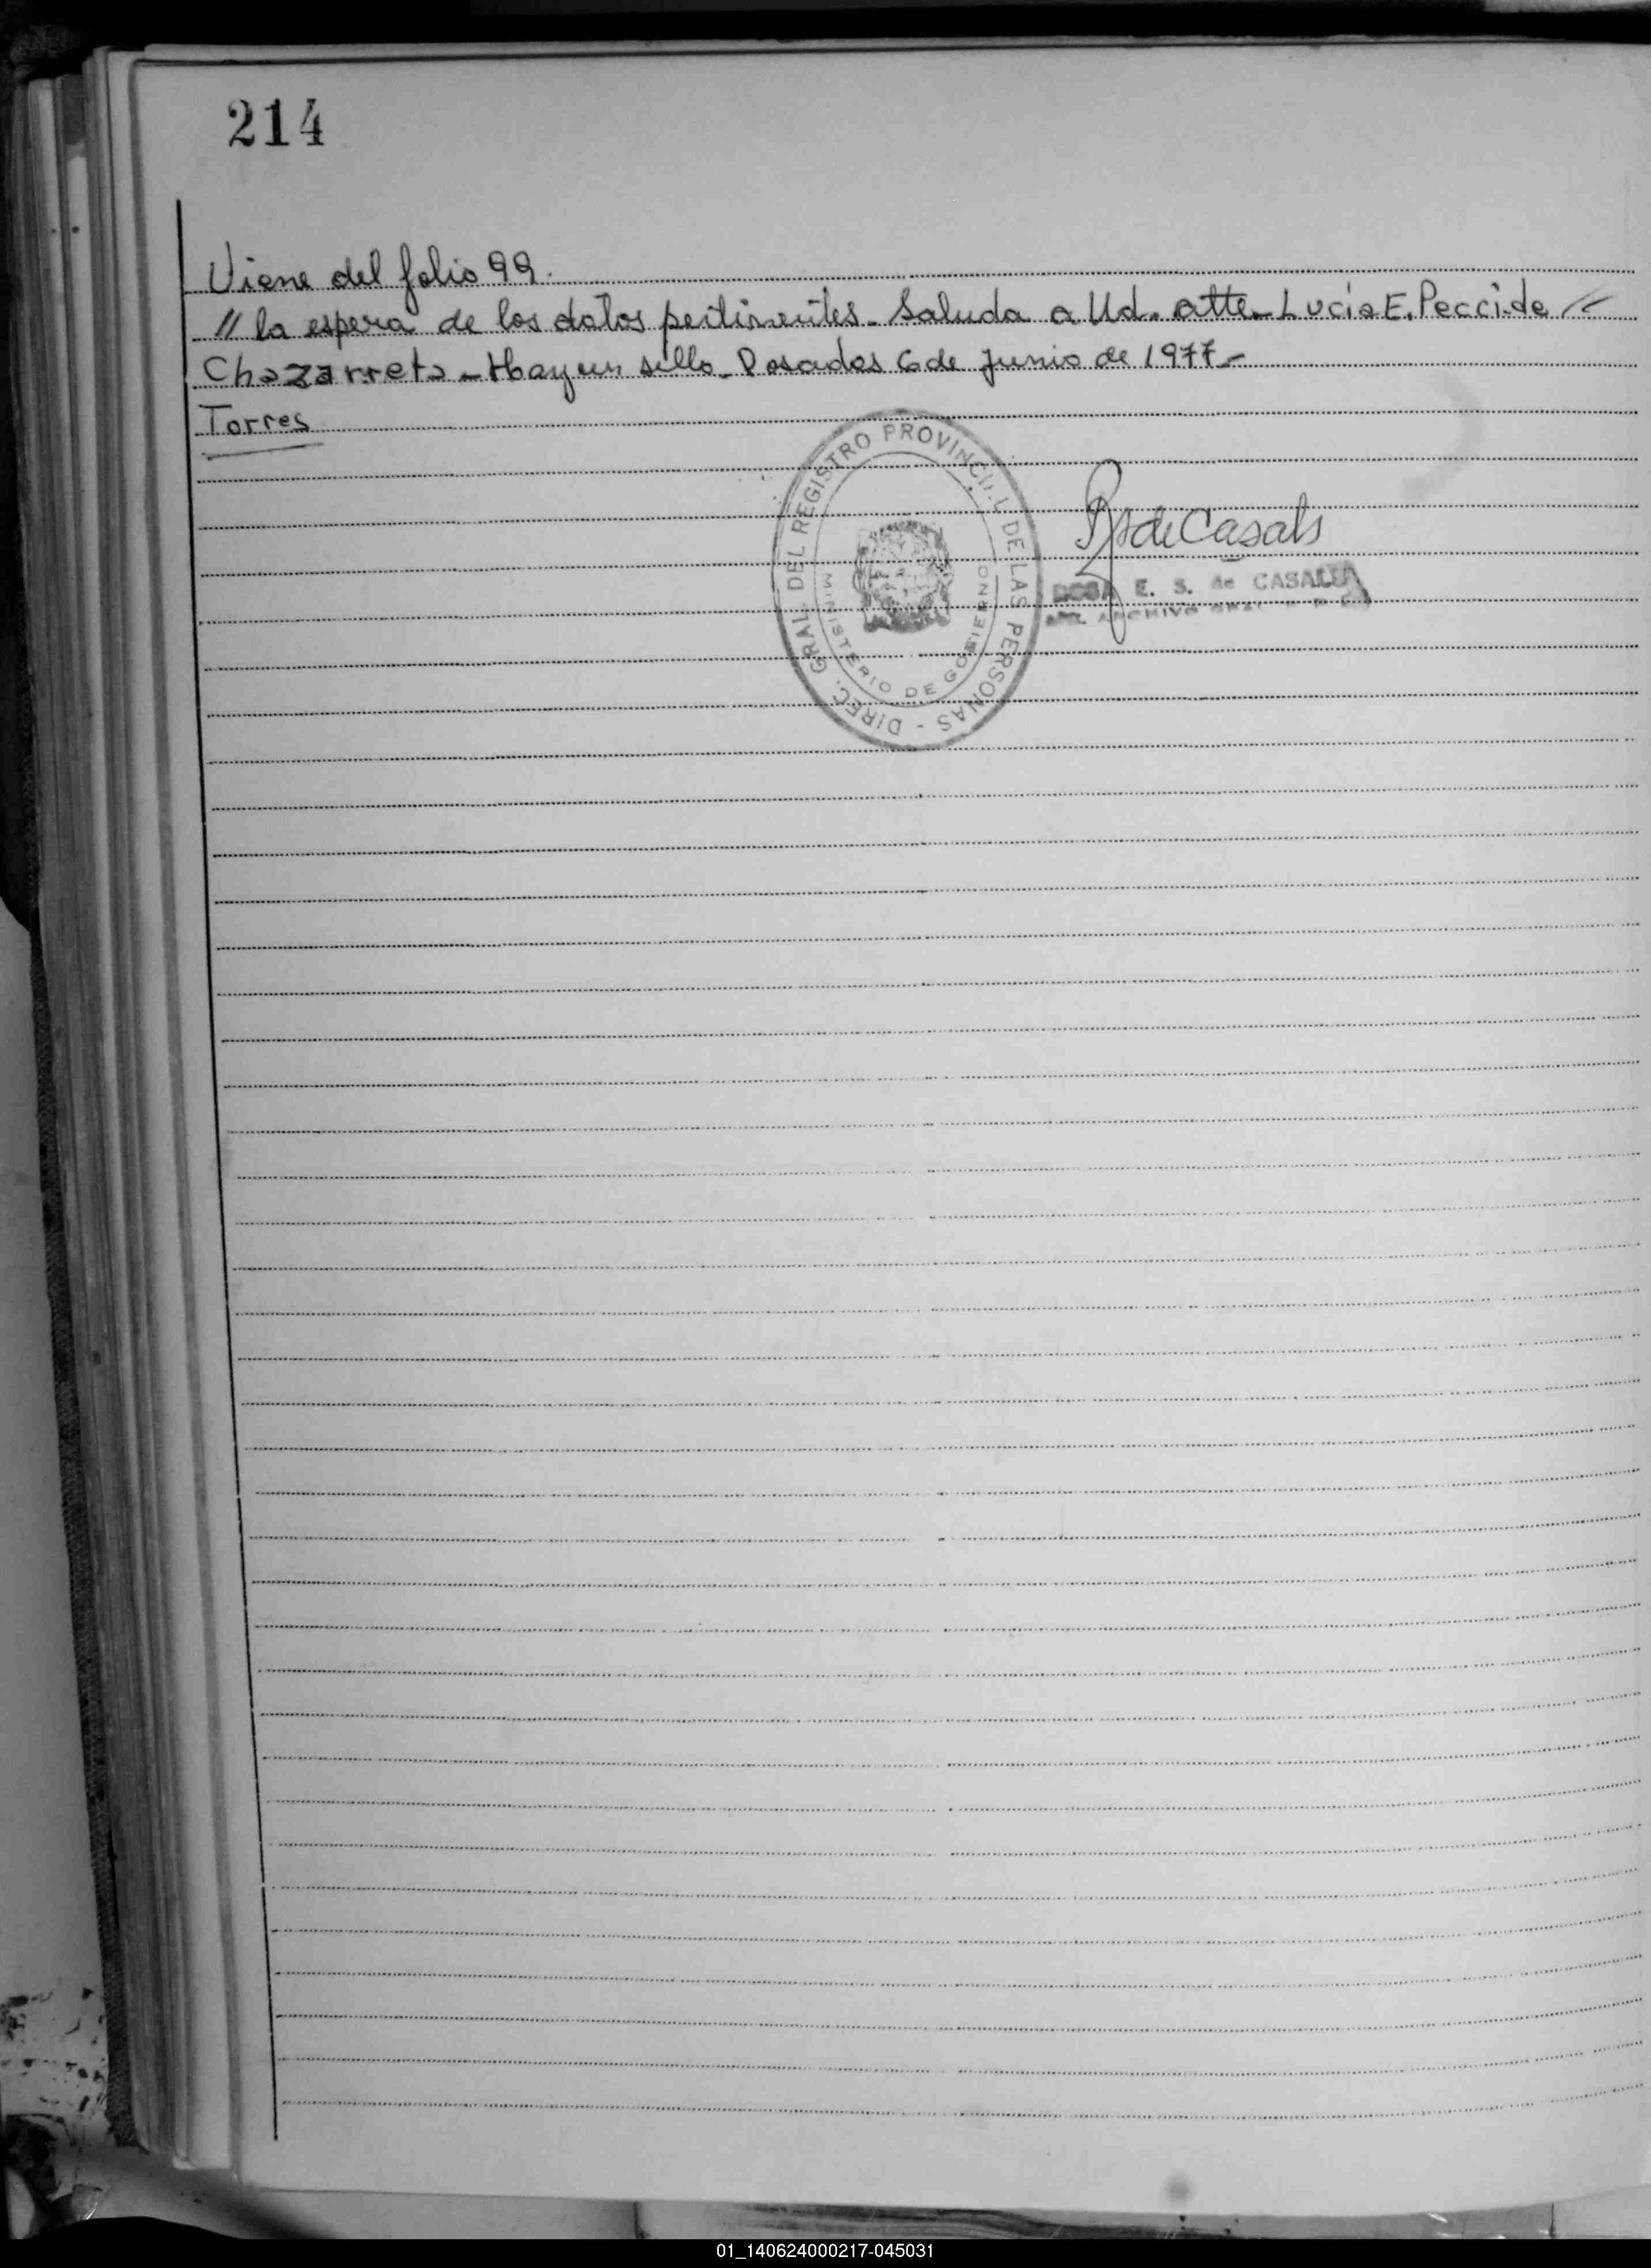 214
Viene del folio 99.
// la espera de los datos pertinentes - Saluda a Ud. atte - Lucía E. Pecci de //
Chazarreta - Hay un sello - Posadas 6 de junio de 1977 -
Torres
DIREC. GRAL. DEL REGISTRO PROVINCIAL DE LAS PERSONAS -
MINISTERIO DE GOBIERNO
de Casals
ROSA E. S. de CASALS
ARCHIVO GRAL
01_140624000217-045031